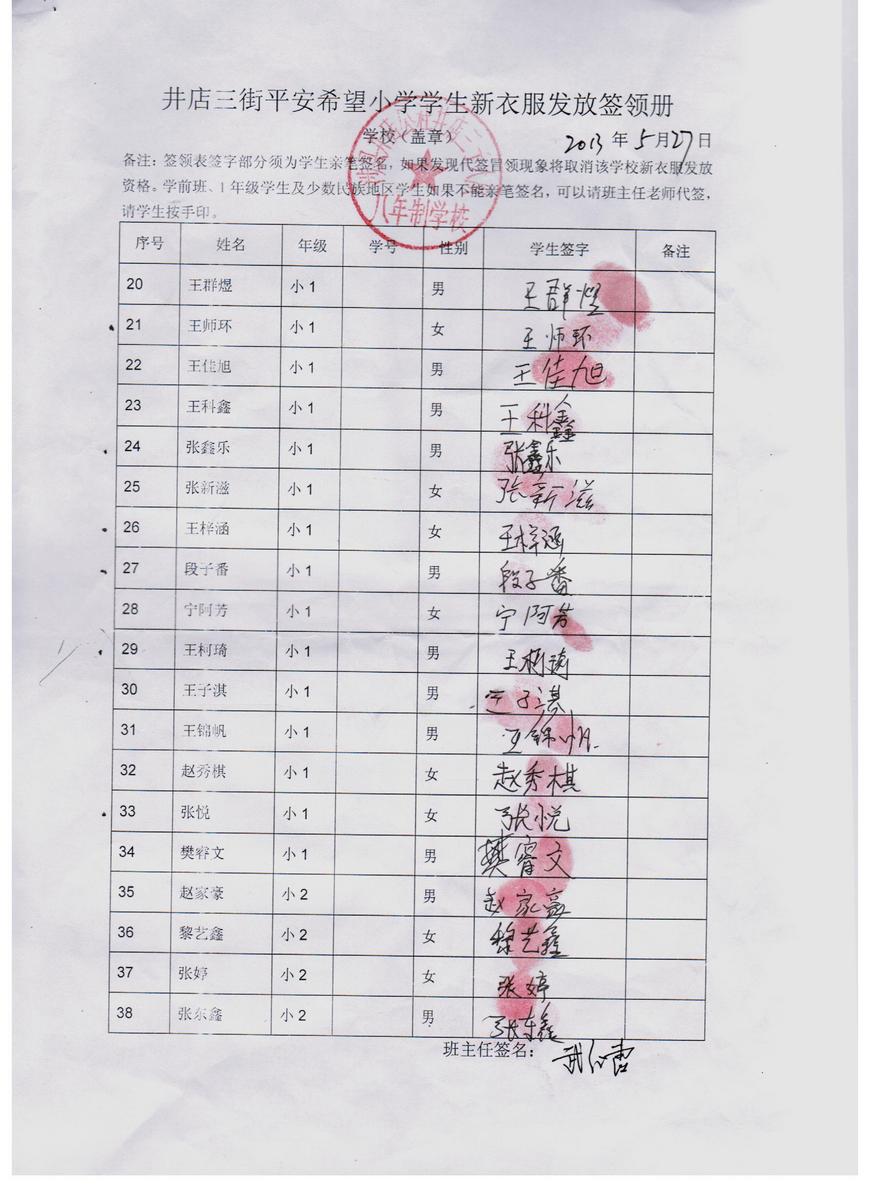 井店三街平安希望小学学生新衣服发放签领册
学校（盖章） 2013 年 5 月 27 日
备注：签领表签字部分须为学生亲笔签名，如果发现代签冒领现象将取消该学校新衣服发放
资格。学前班、1 年级学生及少数民族地区学生如果不能亲笔签名，可以请班主任老师代签，
请学生按手印。
八年制学校
序号 姓名 年级 学号 性别 学生签字 备注
20 王群煜 小 1 男 王群煜
21 王师环 小 1 女 王师环
22 王佳旭 小 1 男 王佳旭
23 王科鑫 小 1 男 王科鑫
24 张鑫乐 小 1 男 张鑫乐
25 张新滋 小 1 女 张新滋
26 王梓涵 小 1 女 王梓涵
27 段子番 小 1 男 段子番
28 宁阿芳 小 1 女 宁阿芳
29 王柯琦 小 1 男 王柯琦
30 王子淇 小 1 男 王子淇
31 王锦帆 小 1 男 王锦帆
32 赵秀棋 小 1 女 赵秀棋
33 张悦 小 1 女 张悦
34 樊睿文 小 1 男 樊睿文
35 赵家豪 小 2 男 赵家豪
36 黎艺鑫 小 2 女 黎艺鑫
37 张婷 小 2 女 张婷
38 张东鑫 小 2 男 张东鑫
班主任签名：